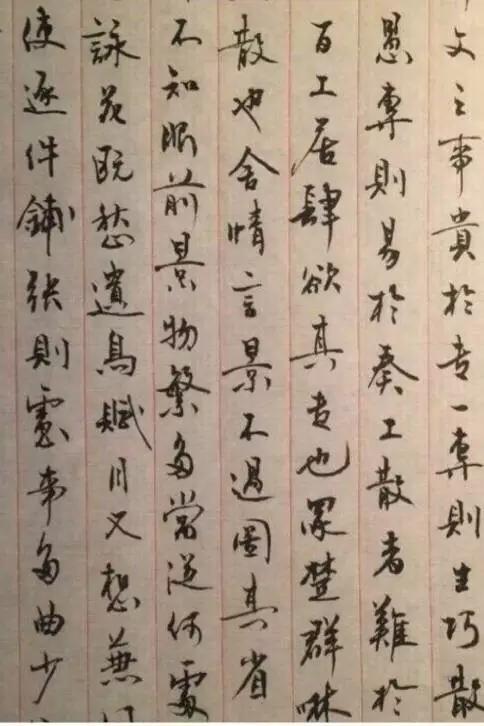 文之事貴於专一專則生巧散
愚專則易於奏工散者難於
百工居肆欲其专也眾楚群咻
散也舍情言景不過圖其省
不知眼前景物繁多當從何處
詠花既愁遺鳥賦月又想兼
使逐件鋪張則慮事多曲少